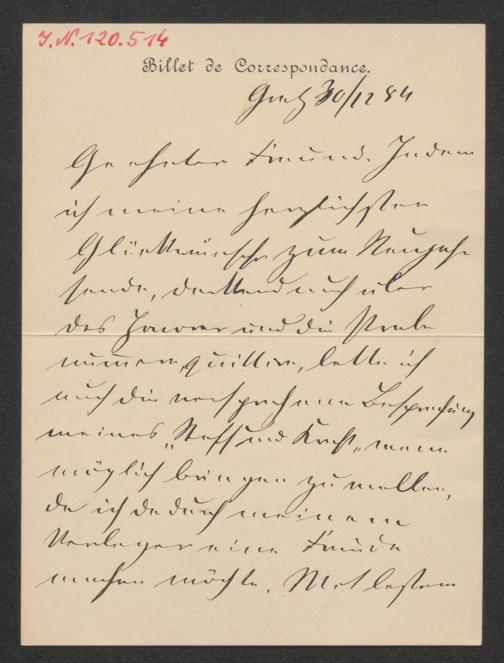 J.N. 120.514
Billet de Correspondance.
Graz 30/12 84
Geehrter Freund. Indem
ich meine herzlichsten
Glückwünsche zum Neujahr
sende, dankend auch über
das Honorar und die Probe
nummern quittire, bitte ich
auch die versprochene Besprechung
meines "Stoff und Kraft" wenn
möglich bringen zu wollen,
da ich dadurch meinem
Verleger eine Freude
machen möchte. Mit bestem